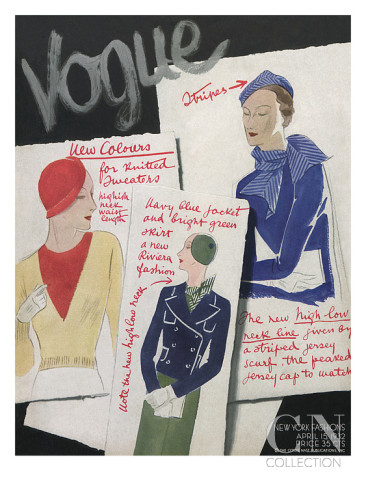 Vogue
Stripes
New Colours
for knitted
Sweaters
neck
waist
length
Navy blue jacket
and bright green
skirt
a new
Riviera
fashion
Note the new high low neck
The new high-low
neck line given by
a striped jersey
scarf, the peaked
jersey cap to match
NEW YORK FASHIONS
APRIL 15, 1932
PRICE 35 CTS
CN
COLLECTION